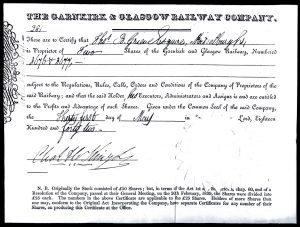 THE GARNKIRK & GLASGOW RAILWAY COMPANY.
These are to Certify that
is Proprietor of Two Shares of the Garnkirk and Glasgow Railway, Numbered
3176 & 3177
subject to the Regulations, Rules, Calls, Orders and Conditions of the Company of Proprietors of the
said Railway; and that the said Holder his Executors, Administrators and Assigns is and are entitled
to the Profits and Advantage of such Shares. Given under the Common Seal of the said Company,
the Thirty first day of May in Lord, Eighteen
Hundred and forty two
N. B. Originally the Stock consisted of £50 Shares; but, in terms of the Act cap. 60, and of a
Resolution of the Company, passed at their General Meeting, on the 20th February, 1839, the Shares were divided into
£25 each. The numbers in the above Certificate are applicable to the £25 Shares. Holders of more Shares than
one may, conform to the original Act incorporating the Company, have separate Certificates for any number of their
Shares, on producing this Certificate at the Office.